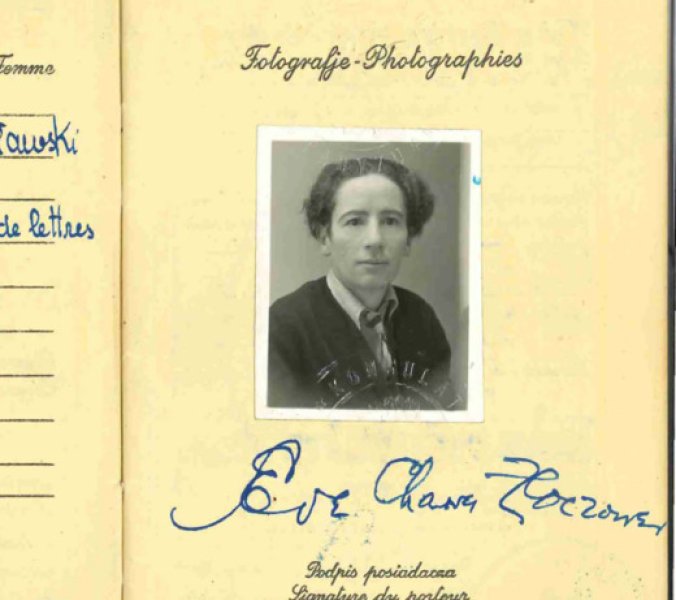 Femme
awski
de lettres
Fotografje-Photographies
KONSULAT
Eve Chawa Zloczower
Podpis posiadacza
Signature du porteur